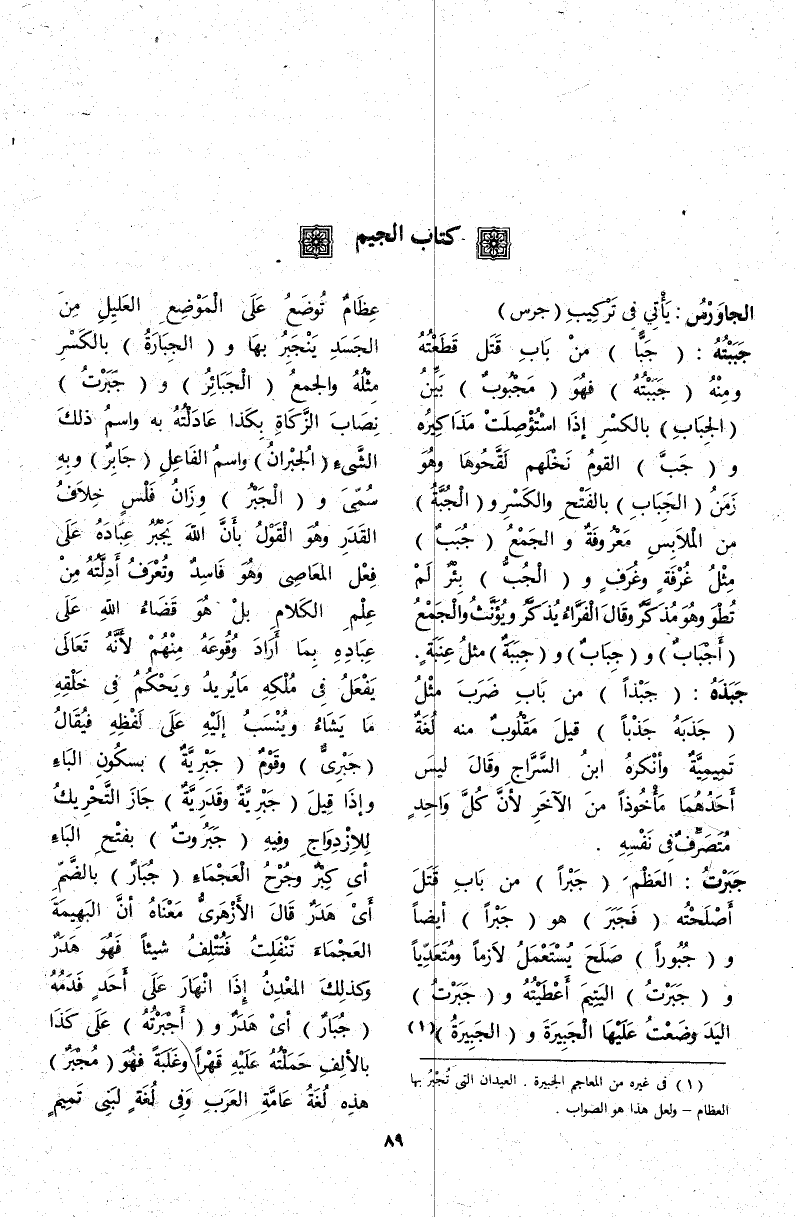 كتاب الجيم
الجاوَرْسُ : يَأْتِي فِى تَرْكِيبِ ( جرس )
جَبَبْتُهُ : ( جَبًّا ) مِنْ بَابِ قَتَل قَطَعْتُهُ
ومِنْهُ ( جَبَبْتُهُ ) فهُوَ ( مَجْبُوبٌ ) بَيِّنُ
( الجِبَابِ ) بالكسْرِ إذَا اسْتُؤْصِلَتْ مَذَاكِيرُه
و ( جَبَّ ) القومُ نَخْلَهم لَقَّحُوهَا وهُوَ
زَمَنُ ( الجَبَابِ ) بالفَتْحِ والكَسْرِ و ( الْجُبَّةُ )
مِن الْمَلَابِسِ مَعْرُوفَةٌ و الجَمْعُ ( جُبَبٌ )
مِثْلُ غُرْفَةٍ وغُرَفٍ و ( الْجُبُّ ) بِئْرٌ لَمْ
تُطْوَ وهُوَ مُذَكَّرٌ وقَالَ الْفَرَّاءُ يُذَكَّرُ ويُؤَنَّثُ والْجَمْعُ
( أَجْبَابٌ ) و ( جِبَابٌ ) و ( جِبَبَةٌ ) مثلُ عِنَبَةٍ .
جَبَذَهُ : ( جَبْذاً ) مِن بَابِ ضَرَبَ مثْلُ
( جَذَبَهُ جَذْباً ) قيلَ مَقْلُوبٌ منه لُغَةٌ
تَمِيمِيَّةٌ وأَنْكرهُ ابنُ السَّرَّاجِ وقَالَ ليسَ
أَحَدُهُمَا مَأْخُوذاً مِنَ الآخَرِ لأَنَّ كُلَّ وَاحِدٍ
مُتَصَرِّفٌ فِى نَفْسِهِ .
جَبَرْتُ : العَظْمَ ( جَبْراً ) مِن بَابِ قَتَلَ
أَصْلَحْتُه ( فَجَبَرَ ) هو ( جَبْراً ) أيضاً
و ( جُبُوراً ) صَلَحَ يُسْتَعْمَلُ لاَزماً ومُتَعَدِّياً
و ( جَبَرْتُ ) اليَتِيمَ أَعْطَيْتُهُ و ( جَبَرْتُ )
اليَدَ وضَعْتُ عَلَيْهَا الْجَبِيرَةَ و ( الجَبِيرَةُ )(١)
( ١ ) فى غيره من المعاجم الجبيرة . العيدان التى تُجْبَرُ بها
العظام – ولعل هذا هو الصواب .
عِظَامٌ تُوضَعُ عَلَى الْمَوْضِعِ العَلِيلِ مِنَ
الجَسَدِ يَنْجَبِرُ بهَا و ( الجِبَارَةُ ) بالكَسْرِ
مِثْلُهُ والجمعُ ( الْجَبَائِرُ ) و ( جَبَرْتُ )
نِصَابَ الزَّكَاةِ بِكَذا عَادَلْتُهُ به واسمُ ذلكَ
الشَّىءِ ( الجُبْرانُ ) واسمُ الفَاعِلِ ( جَابِرٌ ) وبِهِ
سُمِّىَ و ( الْجَبْرُ ) وِزَانُ فَلْسٍ خِلاَفُ
القَدَرِ وهُوَ الْقَوْلُ بأَنَّ اللهَ يَجْبُرُ عِبَادَهُ عَلَى
فِعْلِ المَعَاصِى وهُوَ فَاسِدٌ وتُعْرَفُ أَدِلَّتُهُ مِنْ
عِلْمِ الكَلاَمِ بلْ هُوَ قَضَاءُ اللهِ عَلَى
عِبَادِهِ بِمَا أَرَادَ وُقُوعَهُ مِنْهُمْ لأَنَّهُ تَعَالَى
يَفْعَلُ فِى مُلْكِهِ مَايُرِيدُ ويَحْكُمُ فِى خَلْقِهِ
مَا يَشَاءُ ويُنْسَبُ إلَيْهِ عَلَى لَفْظِهِ فيُقَالُ
( جَبْرِىٌّ ) وقَوْمٌ ( جَبْرِيَّةٌ ) بسكُونِ البَاءِ
وإذَا قِيلَ ( جَبْرِيَّةٌ وقَدَرِيَّةٌ ) جَازَ التَّحْرِيكُ
لِلاِزْدِوَاجِ وفِيهِ ( جَبَرُوتٌ ) بفَتْحِ البَاءِ
أى كِبْرٌ وجُرْحُ الْعَجْمَاءِ ( جُبَارٌ ) بالضَّمِّ
أَىْ هَدَرٌ قَالَ الأَزْهَرِىُّ مَعْنَاهُ أنَّ البَهِيمَةَ
العَجْمَاءَ تَنْفَلِتُ فَتُتْلِفُ شيئاً فَهُوَ هَدَرٌ
وكذلِكَ المَعْدِنُ إِذَا انْهَارَ عَلَى أَحَدٍ فَدَمُهُ
( جُبَارٌ ) أىْ هَدَرٌ و ( أَجْبَرْتُهُ ) عَلَى كَذَا
بالأَلِفِ حَمَلْتُهُ عَلَيْهِ قَهْراً وغَلَبَةً فهُوَ ( مُجْبَرٌ )
هذِه لُغَةُ عامَّةِ العَرَبِ وَفِى لُغَةٍ لبَنِى تَمِيمٍ
٨٩